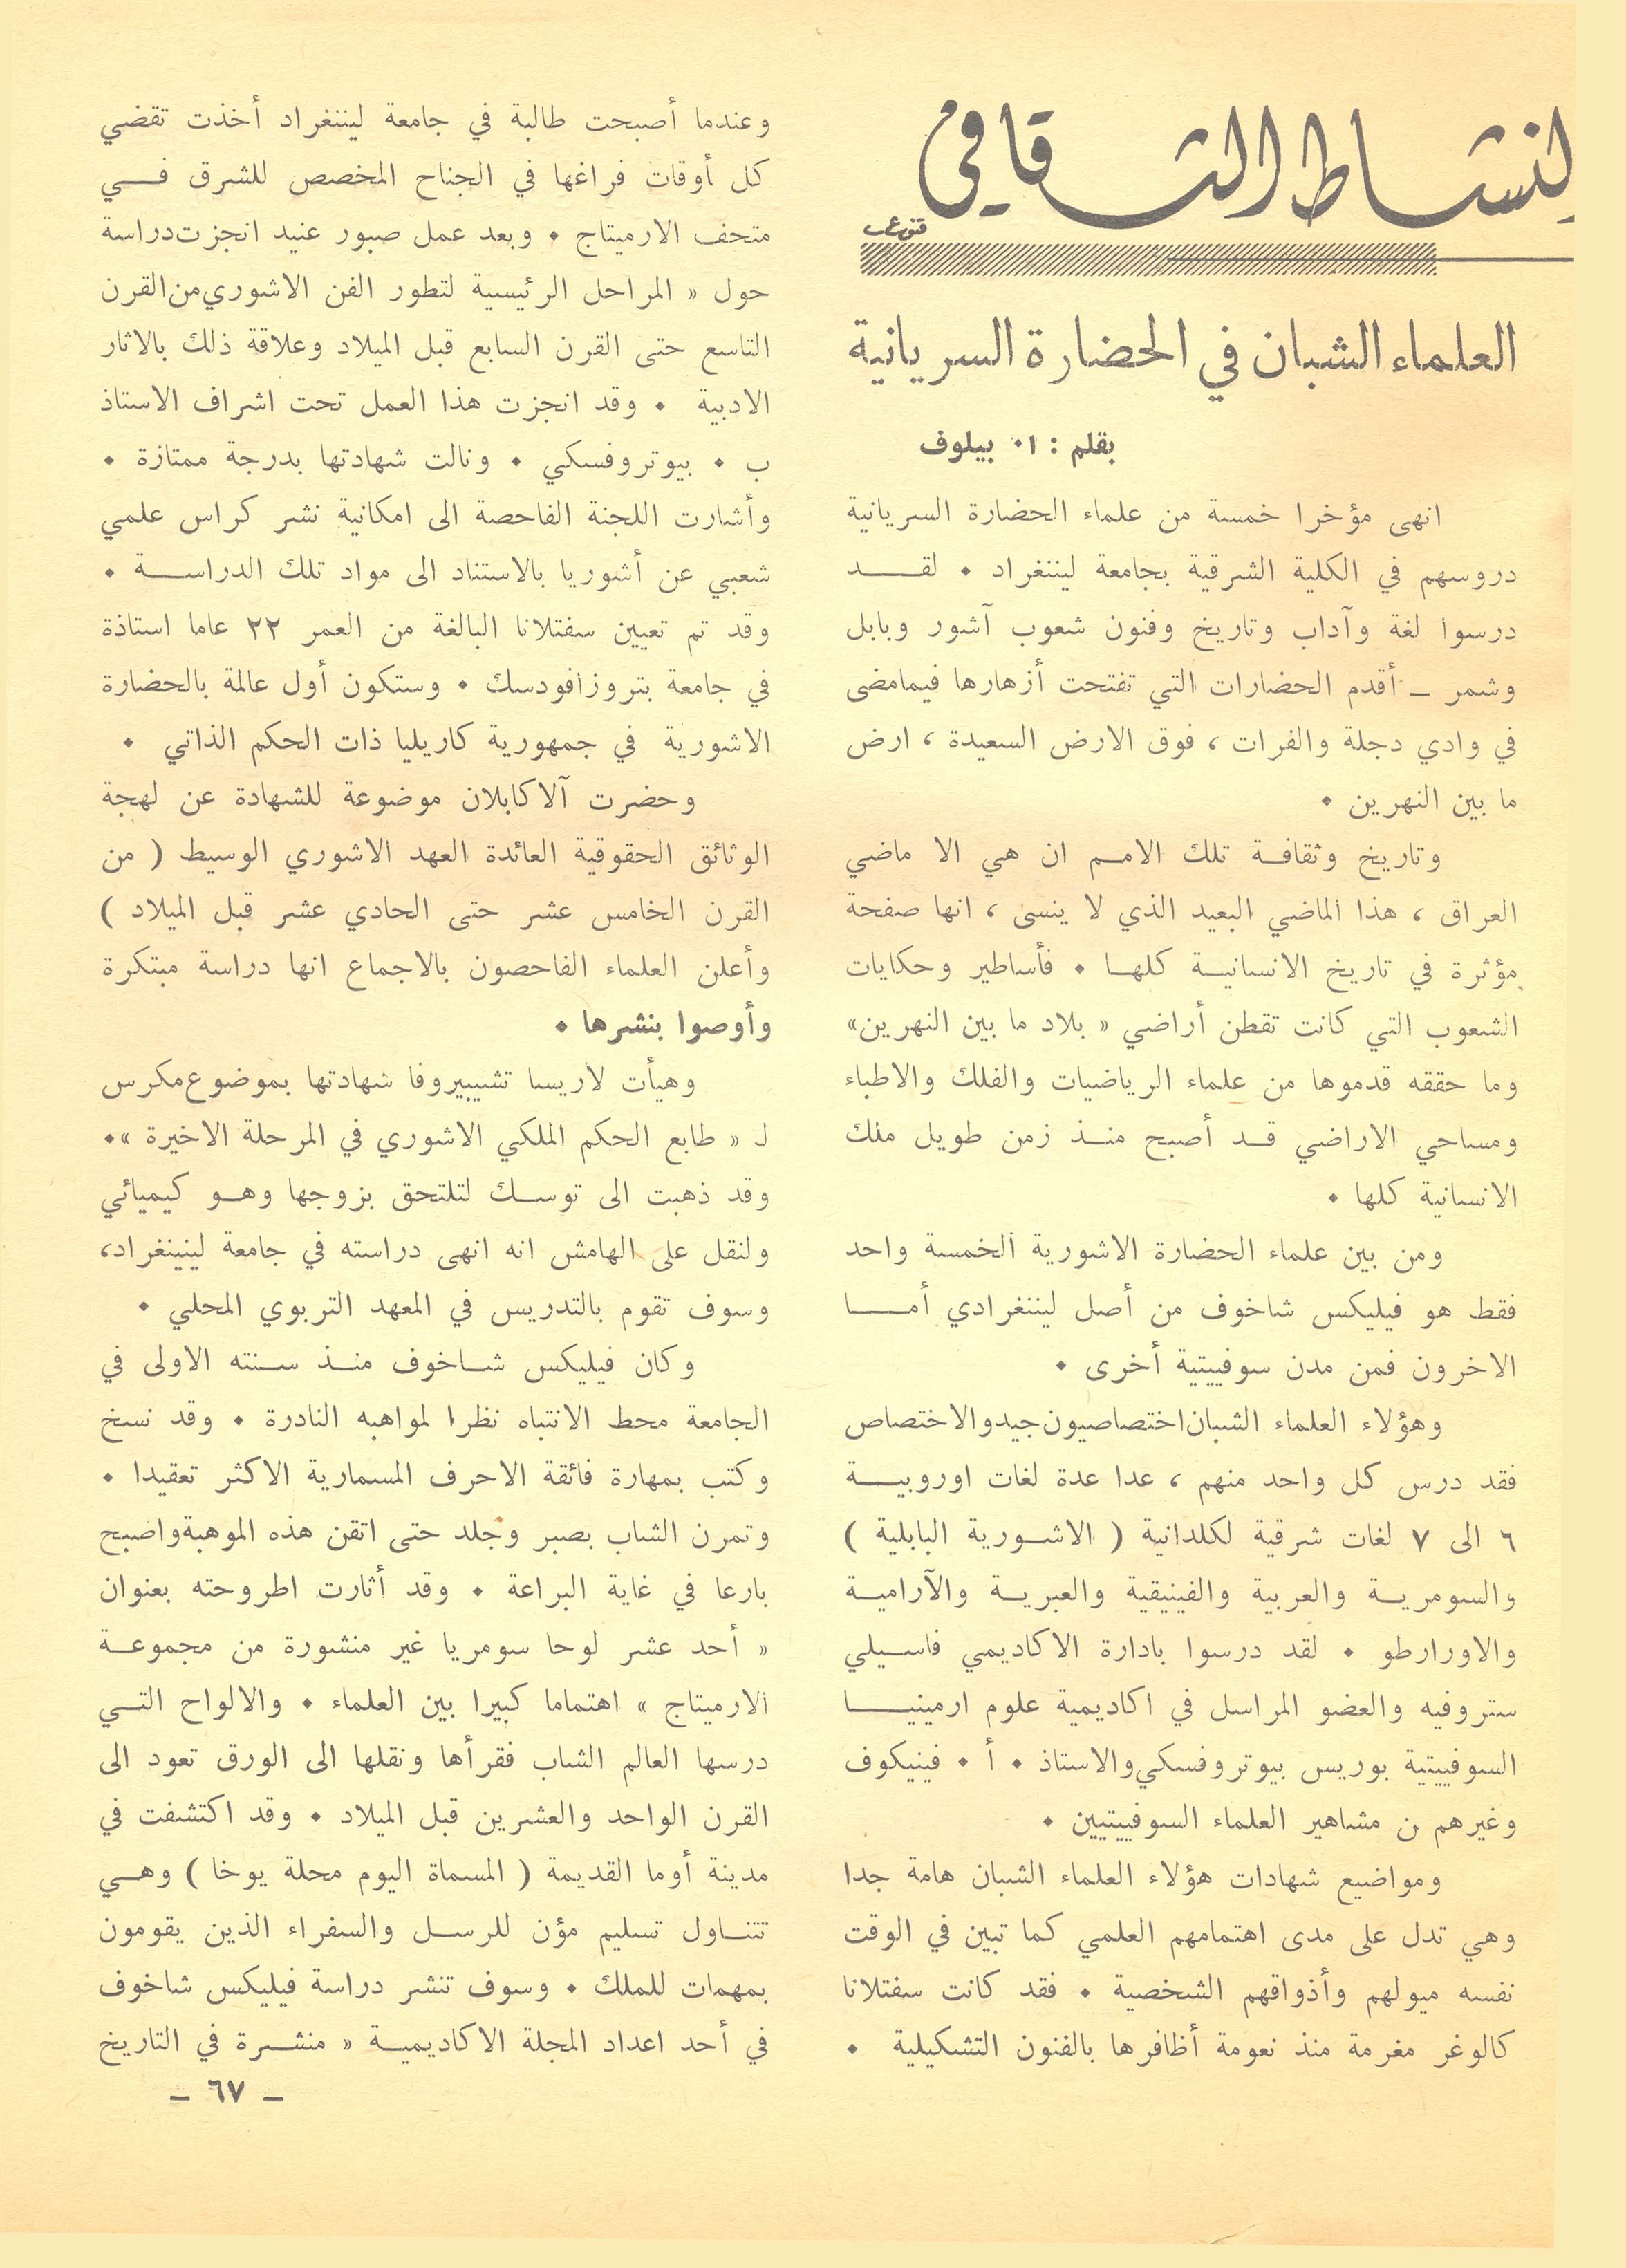 لنشاط الثقافي
العلماء الشبان في الحضارة السريانية
بقلم : ا٠ بيلوف
انهى مؤخرا خمسة من علماء الحضارة السريانية
دروسهم في الكلية الشرقية بجامعة ليننغراد ٠ لقد
درسوا لغة وآداب وتاريخ وفنون شعوب آشور وبابل
وشمر ــ أقدم الحضارات التي تفتحت أزهارها فيمامضى
في وادي دجلة والفرات ، فوق الارض السعيدة ، ارض
ما بين النهرين ٠
وتاريخ وثقافة تلك الامم ان هي الا ماضي
العراق ، هذا الماضي البعيد الذي لا ينسى ، انها صفحة
مؤثرة في تاريخ الانسانية كلها ٠ فأساطير وحكايات
الشعوب التي كانت تقطن أراضي « بلاد ما بين النهرين»
وما حققه قدموها من علماء الرياضيات والفلك والاطباء
ومساحي الاراضي قد أصبح منذ زمن طويل منك
الانسانية كلها ٠
ومن بين علماء الحضارة الاشورية الخمسة واحد
فقط هو فيليكس شاخوف من أصل ليننغرادي أما
الاخرون فمن مدن سوفييتية أخرى ٠
وهؤلاء العلماء الشبان اختصاصيون جيدو الاختصاص
فقد درس كل واحد منهم ، عدا عدة لغات اوروبية
٦ الى ٧ لغات شرقية لكلدانية ( الاشورية البابلية )
والسومرية والعربية والفينيقية والعبرية والآرامية
والاورارطو ٠ لقد درسوا بادارة الاكاديمي فاسيلي
ستروفيه والعضو المراسل في اكاديمية علوم ارمينيا
السوفييتية بوريس بيوتروفسكي والاستاذ ٠ أ ٠ فينيكوف
وغيرهم ن مشاهير العلماء السوفييتيين ٠
ومواضيع شهادات هؤلاء العلماء الشبان هامة جدا
وهي تدل على مدى اهتمامهم العلمي كما تبين في الوقت
نفسه ميولهم وأذواقهم الشخصية ٠ فقد كانت سفتلانا
كالوغر مغرمة منذ نعومة أظافرها بالفنون التشكيلية ٠
وعندما أصبحت طالبة في جامعة ليننغراد أخذت تقضي
كل أوقات فراغها في الجناح المخصص للشرق في
متحف الارميتاج ٠ وبعد عمل صبور عنيد انجزت دراسة
حول « المراحل الرئيسية لتطور الفن الاشوري من القرن
التاسع حتى القرن السابع قبل الميلاد وعلاقة ذلك بالاثار
الادبية ٠ وقد انجزت هذا العمل تحت اشراف الاستاذ
ب ٠ بيوتروفسكي ٠ ونالت شهادتها بدرجة ممتازة ٠
وأشارت اللجنة الفاحصة الى امكانية نشر كراس علمي
شعبي عن أشوريا بالاستناد الى مواد تلك الدراسة ٠
وقد تم تعيين سفتلانا البالغة من العمر ٢٢ عاما استاذة
في جامعة بتروزافودسك ٠ وستكون أول عالمة بالحضارة
الاشورية في جمهورية كاريليا ذات الحكم الذاتي ٠
وحضرت آلا كابلان موضوعة للشهادة عن لهجة
الوثائق الحقوقية العائدة العهد الاشوري الوسيط ( من
القرن الخامس عشر حتى الحادي عشر قبل الميلاد )
وأعلن العلماء الفاحصون بالاجماع انها دراسة مبتكرة
وأوصوا بنشرها ٠
وهيأت لاريسا تشيبيروفا شهادتها بموضوع مكرس
لـ « طابع الحكم الملكي الاشوري في المرحلة الاخيرة »٠
وقد ذهبت الى توسك لتلتحق بزوجها وهو كيميائي
ولنقل على الهامش انه انهى دراسته في جامعة لينينغراد،
وسوف تقوم بالتدريس في المعهد التربوي المحلي ٠
وكان فيليكس شاخوف منذ سنته الاولى في
الجامعة محط الانتباه نظرا لمواهبه النادرة ٠ وقد نسخ
وكتب بمهارة فائقة الاحرف المسمارية الاكثر تعقيدا ٠
وتمرن الشاب بصبر وجلد حتى اتقن هذه الموهبة واصبح
بارعا في غاية البراعة ٠ وقد أثارت اطروحته بعنوان
« أحد عشر لوحا سومريا غير منشورة من مجموعة
الارميتاج » اهتماما كبيرا بين العلماء ٠ والالواح التي
درسها العالم الشاب فقرأها ونقلها الى الورق تعود الى
القرن الواحد والعشرين قبل الميلاد ٠ وقد اكتشفت في
مدينة أوما القديمة ( المسماة اليوم محلة يوخا ) وهي
تتناول تسليم مؤن للرسل والسفراء الذين يقومون
بمهمات للملك ٠ وسوف تنشر دراسة فيليكس شاخوف
في أحد اعداد المجلة الاكاديمية « منشرة في التاريخ
ــ ٦٧ ــ